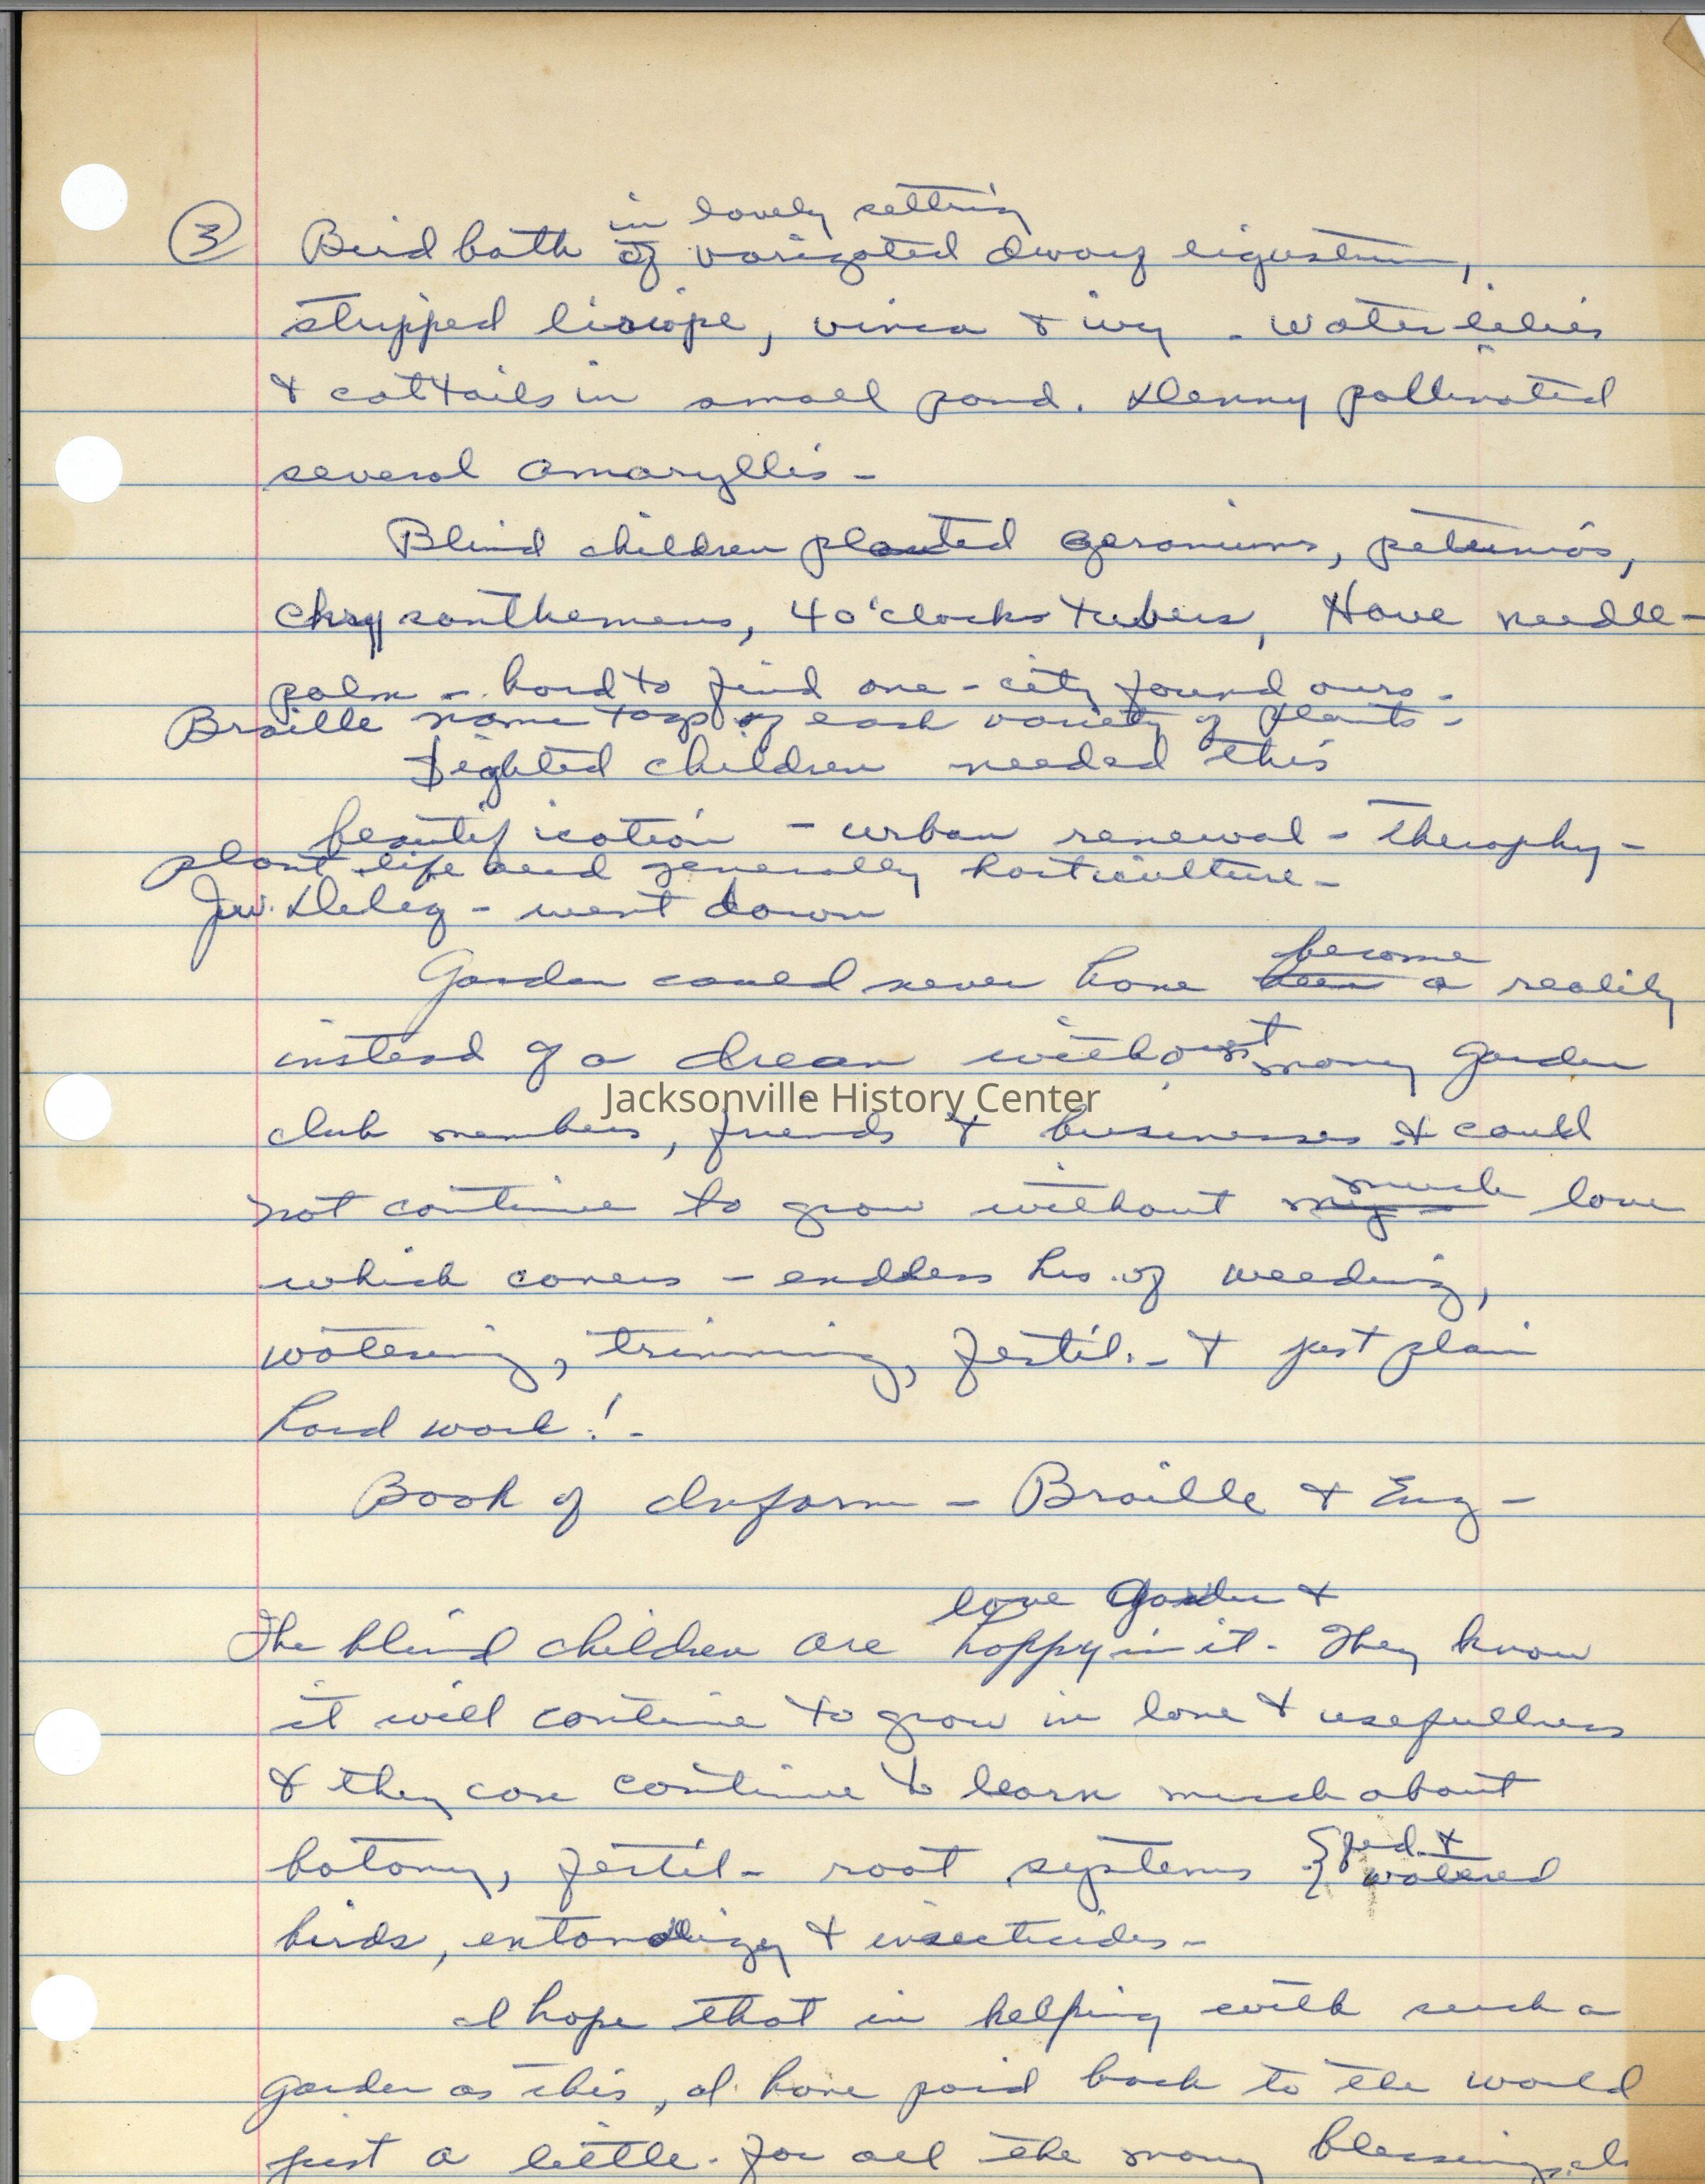 in lovely setting
③ Bird bath of varigated dwarf ligustrum,
stripped liriope, vinca & ivy - water lilies
& cattails in small pond. Denny pollinated
several amaryllis -
Blind children planted geraniums, petunias,
chrysanthemems, 4 o'clocks tubers, Have needle-
palm - hard to find one - city found ours -
Braille name tags of each variety of plants -
Sighted children needed this
beautification - urban renewal - theraphy -
plant life and generally horticulture -
Juv. Deleq - went down
become
Garden could never have been a reality
instead of a dream without many garden
club members, friends & businesses & could
much
not continue to grow without love
which covers - endless hrs. of weeding,
watering, trimming, fertil. - & just plain
hard work! -
Book of Inform - Braille & Eng -
love Garden &
The blind children are happy in it. They know
it will continue to grow in love & usefullness
& they can continue to learn much about
botany, fertil - root systems { fed &
watered
birds, entomology & insecticides -
I hope that in helping with such a
garden as this, I have paid back to the world
just a little for all the many blessings I
Jacksonville History Center